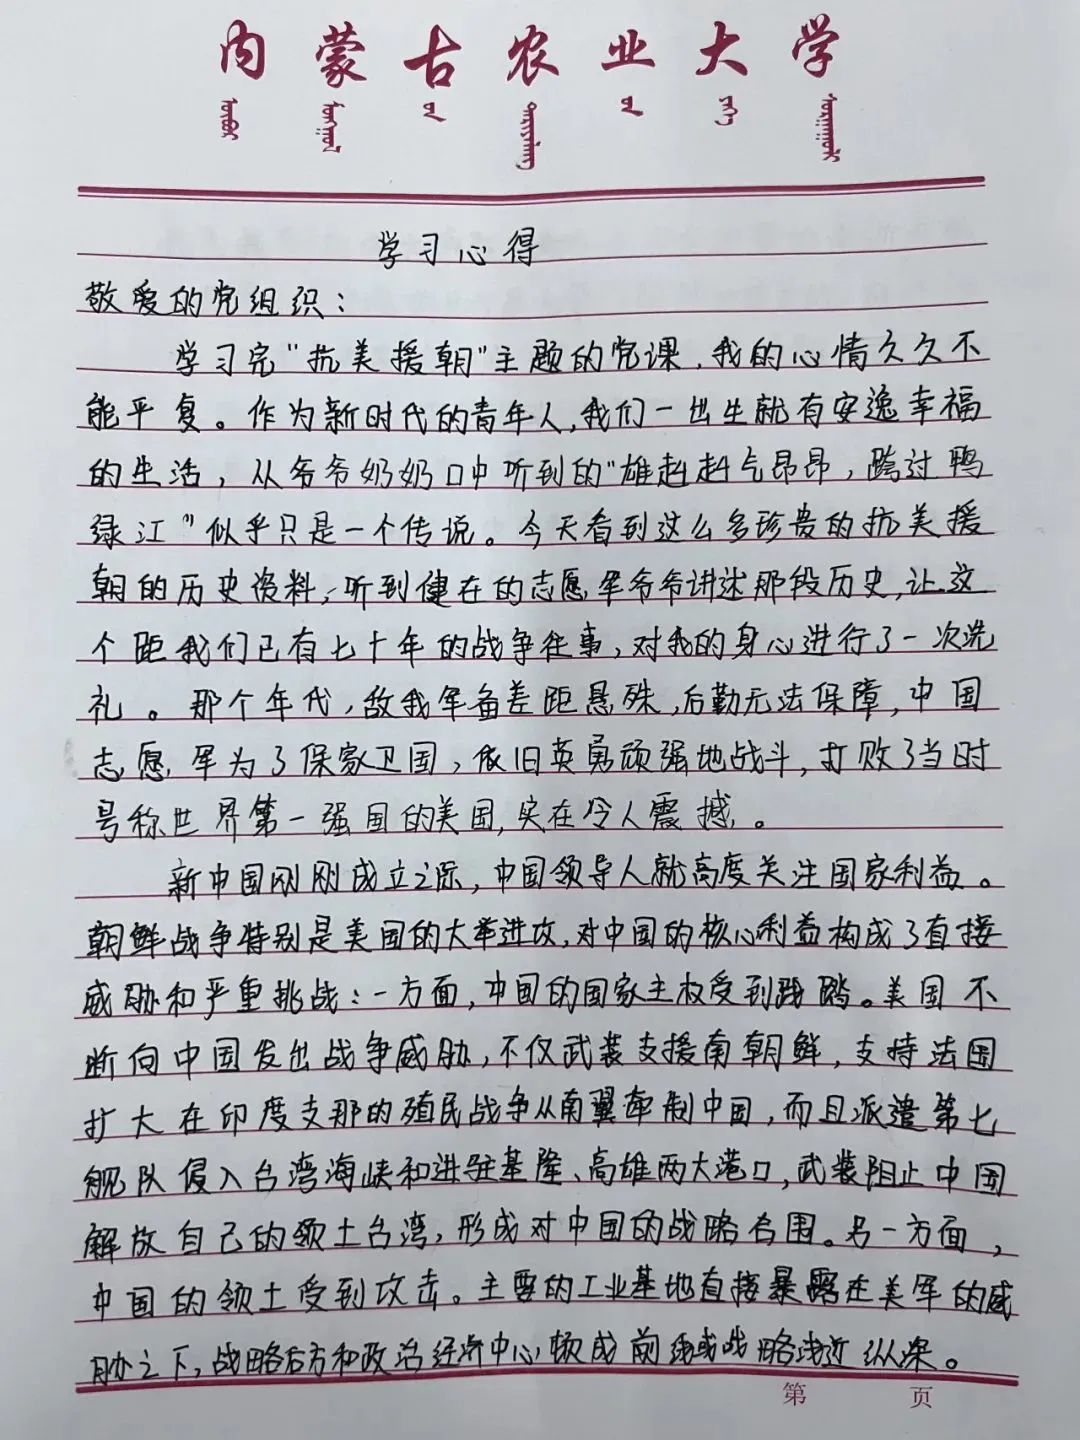 内蒙古农业大学
学习心得
敬爱的党组织：
学习完"抗美援朝"主题的党课，我的心情久久不
能平复。作为新时代的青年人，我们一出生就有安逸幸福
的生活，从爷爷奶奶口中听到的"雄赳赳气昂昂，跨过鸭
绿江"似乎只是一个传说。今天看到这么多珍贵的抗美援
朝的历史资料，听到健在的志愿军爷爷讲述那段历史，让这
个距我们已有七十年的战争往事，对我的身心进行了一次洗
礼。那个年代，敌我军备差距悬殊，后勤无法保障，中国
志愿军为了保家卫国，依旧英勇顽强地战斗，打败了当时
号称世界第一强国的美国，实在令人震撼。
新中国刚刚成立之际，中国领导人就高度关注国家利益。
朝鲜战争特别是美国的大举进攻，对中国的核心利益构成了直接
威胁和严重挑战：一方面，中国的国家主权受到践踏。美国不
断向中国发出战争威胁，不仅武装支援南朝鲜，支持法国
扩大在印度支那的殖民战争从南翼牵制中国，而且派遣第七
舰队侵入台湾海峡和进驻基隆、高雄两大港口，武装阻止中国
解放自己的领土台湾，形成对中国的战略包围。另一方面，
中国的领土受到攻击。主要的工业基地直接暴露在美军的威
胁之下，战略后方和政治经济中心，顿成前线或战略浅近纵深。
第 页